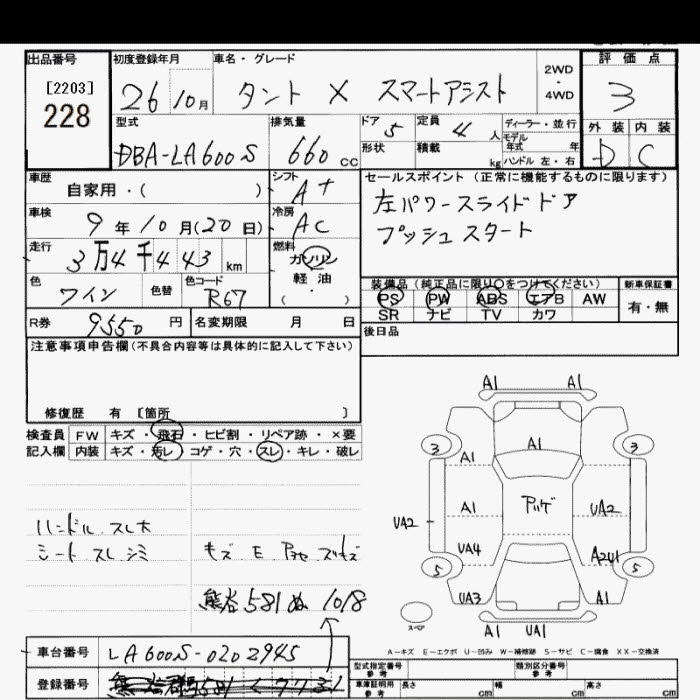 出品番号
[2203]
228
初度登録年月
26 10月
車名・グレード
タント X スマートアシスト
2WD
・
4WD
評価点
3
外装 内装
D C
型式
DBA-LA600S
排気量
660 cc
ドア 5
定員 4 人
ディーラー・並行
モデル年式 年
形状
積載 kg
ハンドル 左・右
車歴
自家用・( )
シフト
A T
セールスポイント (正常に機能するものに限ります)
左パワースライドドア
プッシュスタート
車検
9年10月(20日)
冷房
AC
走行
3万4千443 km
燃料
ガソリン
軽油
( ・ )
色
ワイン
色替
色コード
R67
装備品 (純正品に限り○をつけてください)
PS PW ABS エアB AW
SR ナビ TV カワ
新車保証書
有・無
R券 9550 円
名変期限 月 日
後日品
注意事項申告欄(不具合内容等は具体的に記入して下さい)
修復歴 有 [箇所 ]
検査員記入欄
FW キズ・飛石・ヒビ割・リペア跡・×要
内装 キズ・汚レ・コゲ・穴・スレ・キレ・破レ
ハンドル スレ大
シート スレ シミ
キズ E
熊谷 581 ぬ 1018
A1 A1
3 3
A1 A1
A1 アリゲ UA2
UA2
UA4 A2U1
5 5
UA3 A1
スペア
A1 UA1
A-キズ E-エクボ U-凹み W-補修跡 S-サビ C-腐食 XX-交換済
車台番号
LA600S-0202945
登録番号
型式指定番号
参考
類別区分番号
参考
車庫証明用
参考
長さ cm
幅 cm
高さ cm